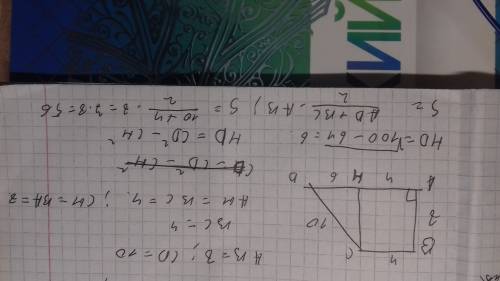 AB = 8; CD = 10
BC = 4
AH = BC = 4; CH = BA = 8
HD = CD² - CH²
HD = √100 - 64 = 6
S = (AD + BC)/2 · AB; S = (10 + 4)/2 · 8 = 7 · 8 = 56
B 4 C
8 10
A 4 H 6 D
КИЙ